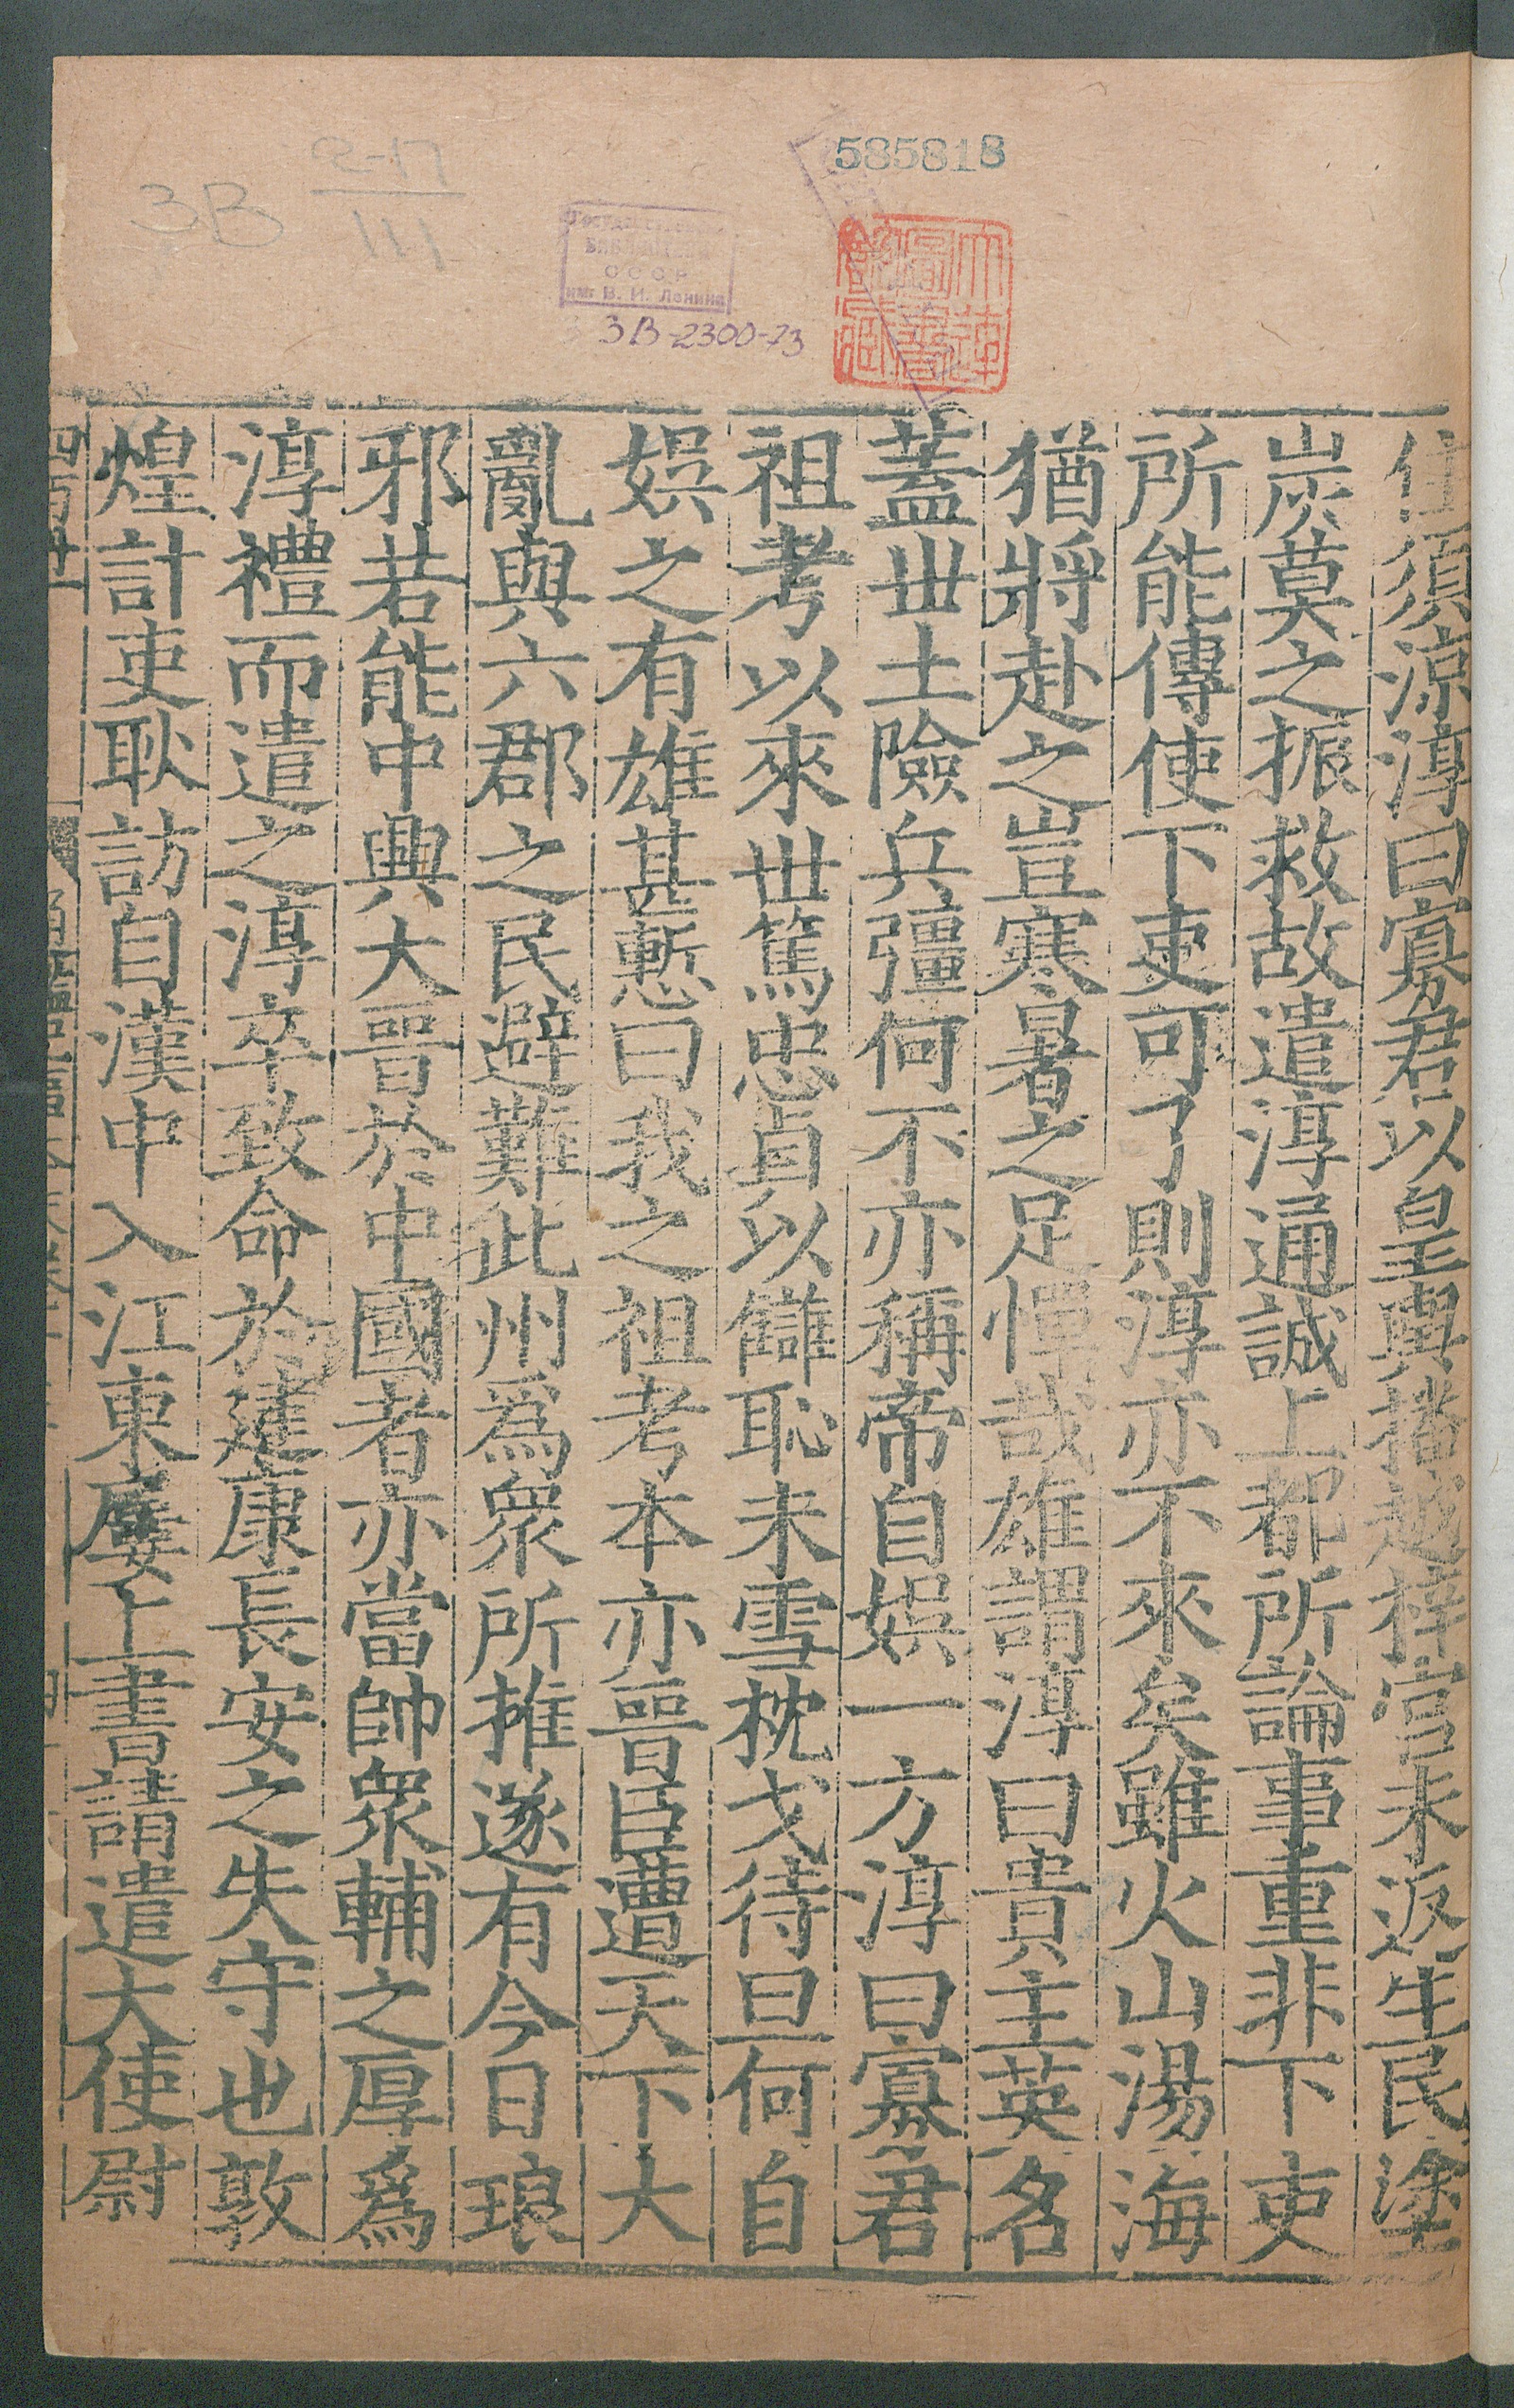 585818
Государственная
БИБЛИОТЕКА
СССР
им. В. И. Ленина
3В-2300-73
3В 2-17
111
大連圖書館藏
住須涼淳曰寡君以皇輿播越梓宮未返生民塗
炭莫之振救故遣淳通誠上都所論事重非下吏
所能傳使下吏可了則淳亦不來矣雖火山湯海
猶將赴之豈寒暑之足憚哉雄謂淳曰貴主英名
蓋世土險兵彊何不亦稱帝自娛一方淳曰寡君
祖考以來世篤忠貞以讎恥未雪枕戈待旦何自
娛之有雄甚慙曰我之祖考本亦晉臣遭天下大
亂與六郡之民避難此州爲衆所推遂有今日琅
邪若能中興大晉於中國者亦當帥衆輔之厚爲
淳禮而遣之淳卒致命於建康長安之失守也敦
煌計吏耿訪自漢中入江東屢上書請遣大使尉